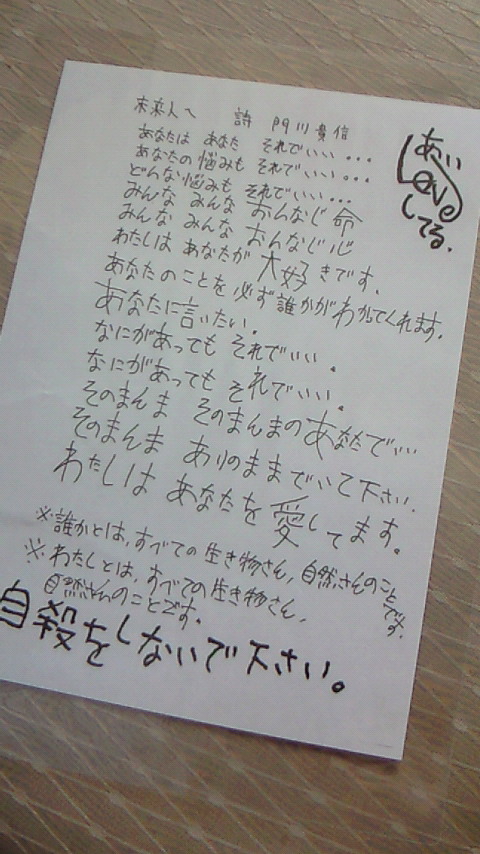 未来人へ 詩 門川貴信
あい
Love
してる.
あなたは あなた それでいい...
あなたの悩みも それでいい...
どんな悩みも それでいい...
みんな みんな おんなじ命
みんな みんな おんなじ心
わたしは あなたが 大好きです。
あなたのことを 必ず誰かがわかってくれます.
あなたに言いたい.
なにがあっても それでいい.
なにがあっても それでいい.
そのまんま そのまんまのあなたでいい
そのまんま ありのままでいて下さい.
わたしは あなたを 愛してます。
※誰かとは、すべての生き物さん, 自然さんのことです.
※わたしとは、すべての生き物さん,
自然さんのことです.
自殺をしないで下さい。